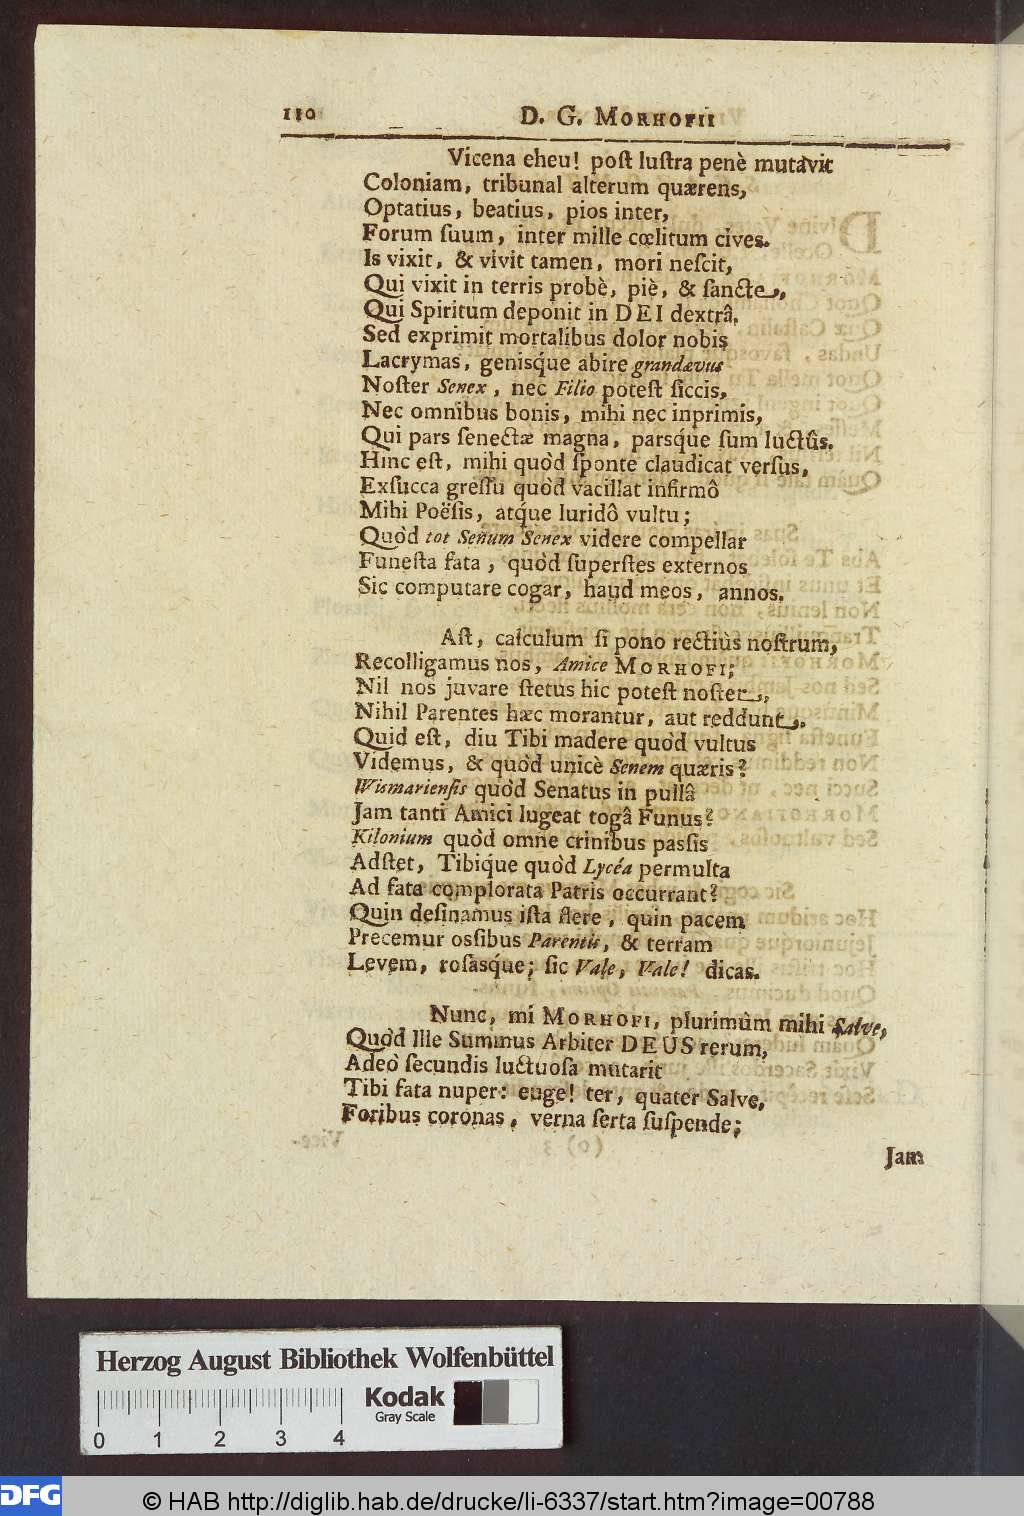 110 D. G. MORHOFII
Vicena eheu! poſt luſtra penè mutavit
Coloniam, tribunal alterum quærens,
Optatius, beatius, pios inter,
Forum ſuum, inter mille cœlitum cives.
Is vixit, & vivit tamen, mori neſcit,
Qui vixit in terris probè, piè, & ſancte,
Qui Spiritum deponit in DEI dextrâ.
Sed exprimit mortalibus dolor nobis
Lacrymas, genisq́ue abire grandævus
Noſter Senex, nec Filio poteſt ſiccis,
Nec omnibus bonis, mihi nec inprimis,
Qui pars ſenectæ magna, parsq́ue ſum luctûs.
Hinc eſt, mihi quòd ſponte claudicat verſus,
Exſucca greſſu quòd vacillat infirmô
Mihi Poëſis, atq́ue luridô vultu;
Quòd tot Senum Senex videre compellar
Funeſta fata, quòd ſuperſtes externos
Sic computare cogar, haud meos, annos.
Aſt, calculum ſi pono rectiùs noſtrum,
Recolligamus nos, Amice MORHOFI;
Nil nos juvare fletus hic poteſt noſter,
Nihil Parentes hæc morantur, aut reddunt.
Quid eſt, diu Tibi madere quòd vultus
Videmus, & quòd unicè Senem quæris?
Wismarienſis quòd Senatus in pullâ
Jam tanti Amici lugeat togâ Funus?
Kilonium quòd omne crinibus paſſis
Adſtet, Tibiq́ue quòd Lycéa permulta
Ad fata complorata Patris occurrant?
Quin deſinamus iſta flere, quin pacem
Precemur oſſibus Parentis, & terram
Levem, roſasq́ue; ſic Vale, Vale! dicas.
Nunc, mi MORHOFI, plurimùm mihi Salve,
Quòd Ille Summus Arbiter DEUS rerum,
Adeò ſecundis luctuoſa mutarit
Tibi fata nuper: euge! ter, quater Salve,
Foribus coronas, verna ſerta ſuſpende;
Jam
Herzog August Bibliothek Wolfenbüttel
Kodak
Gray Scale
0 1 2 3 4
DFG © HAB http://diglib.hab.de/drucke/li-6337/start.htm?image=00788